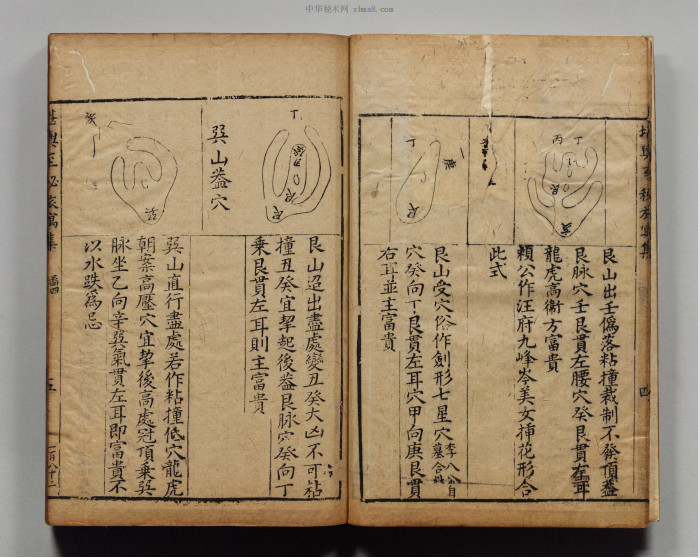 中华秘术网 zlmz8.com
丁
丙
亥
艮山出壬僞落粘撞裁制不發頂葢
艮脉穴壬艮貫左腰穴癸艮貫左耳
龍虎高衛方富貴
賴公作汪府九峰岑美女揷花形合
此式
丁
艮
艮山受穴俗作劍形七星穴
穴癸向丁艮貫左耳穴甲向庚艮貫
右耳並主富貴
丁
艮
艮山迢出盡處變丑癸大凶不可粘
撞丑癸宜挈起後葢艮脉穴癸向丁
乘艮貫左耳則主富貴
巽山葢穴
巽
巽山直行盡處若作粘撞低穴龍虎
朝案高壓穴宜挈後高處冠頂乗巽
脉坐乙向辛巽氣貫左耳即富貴不
以水跌爲忌
五
四